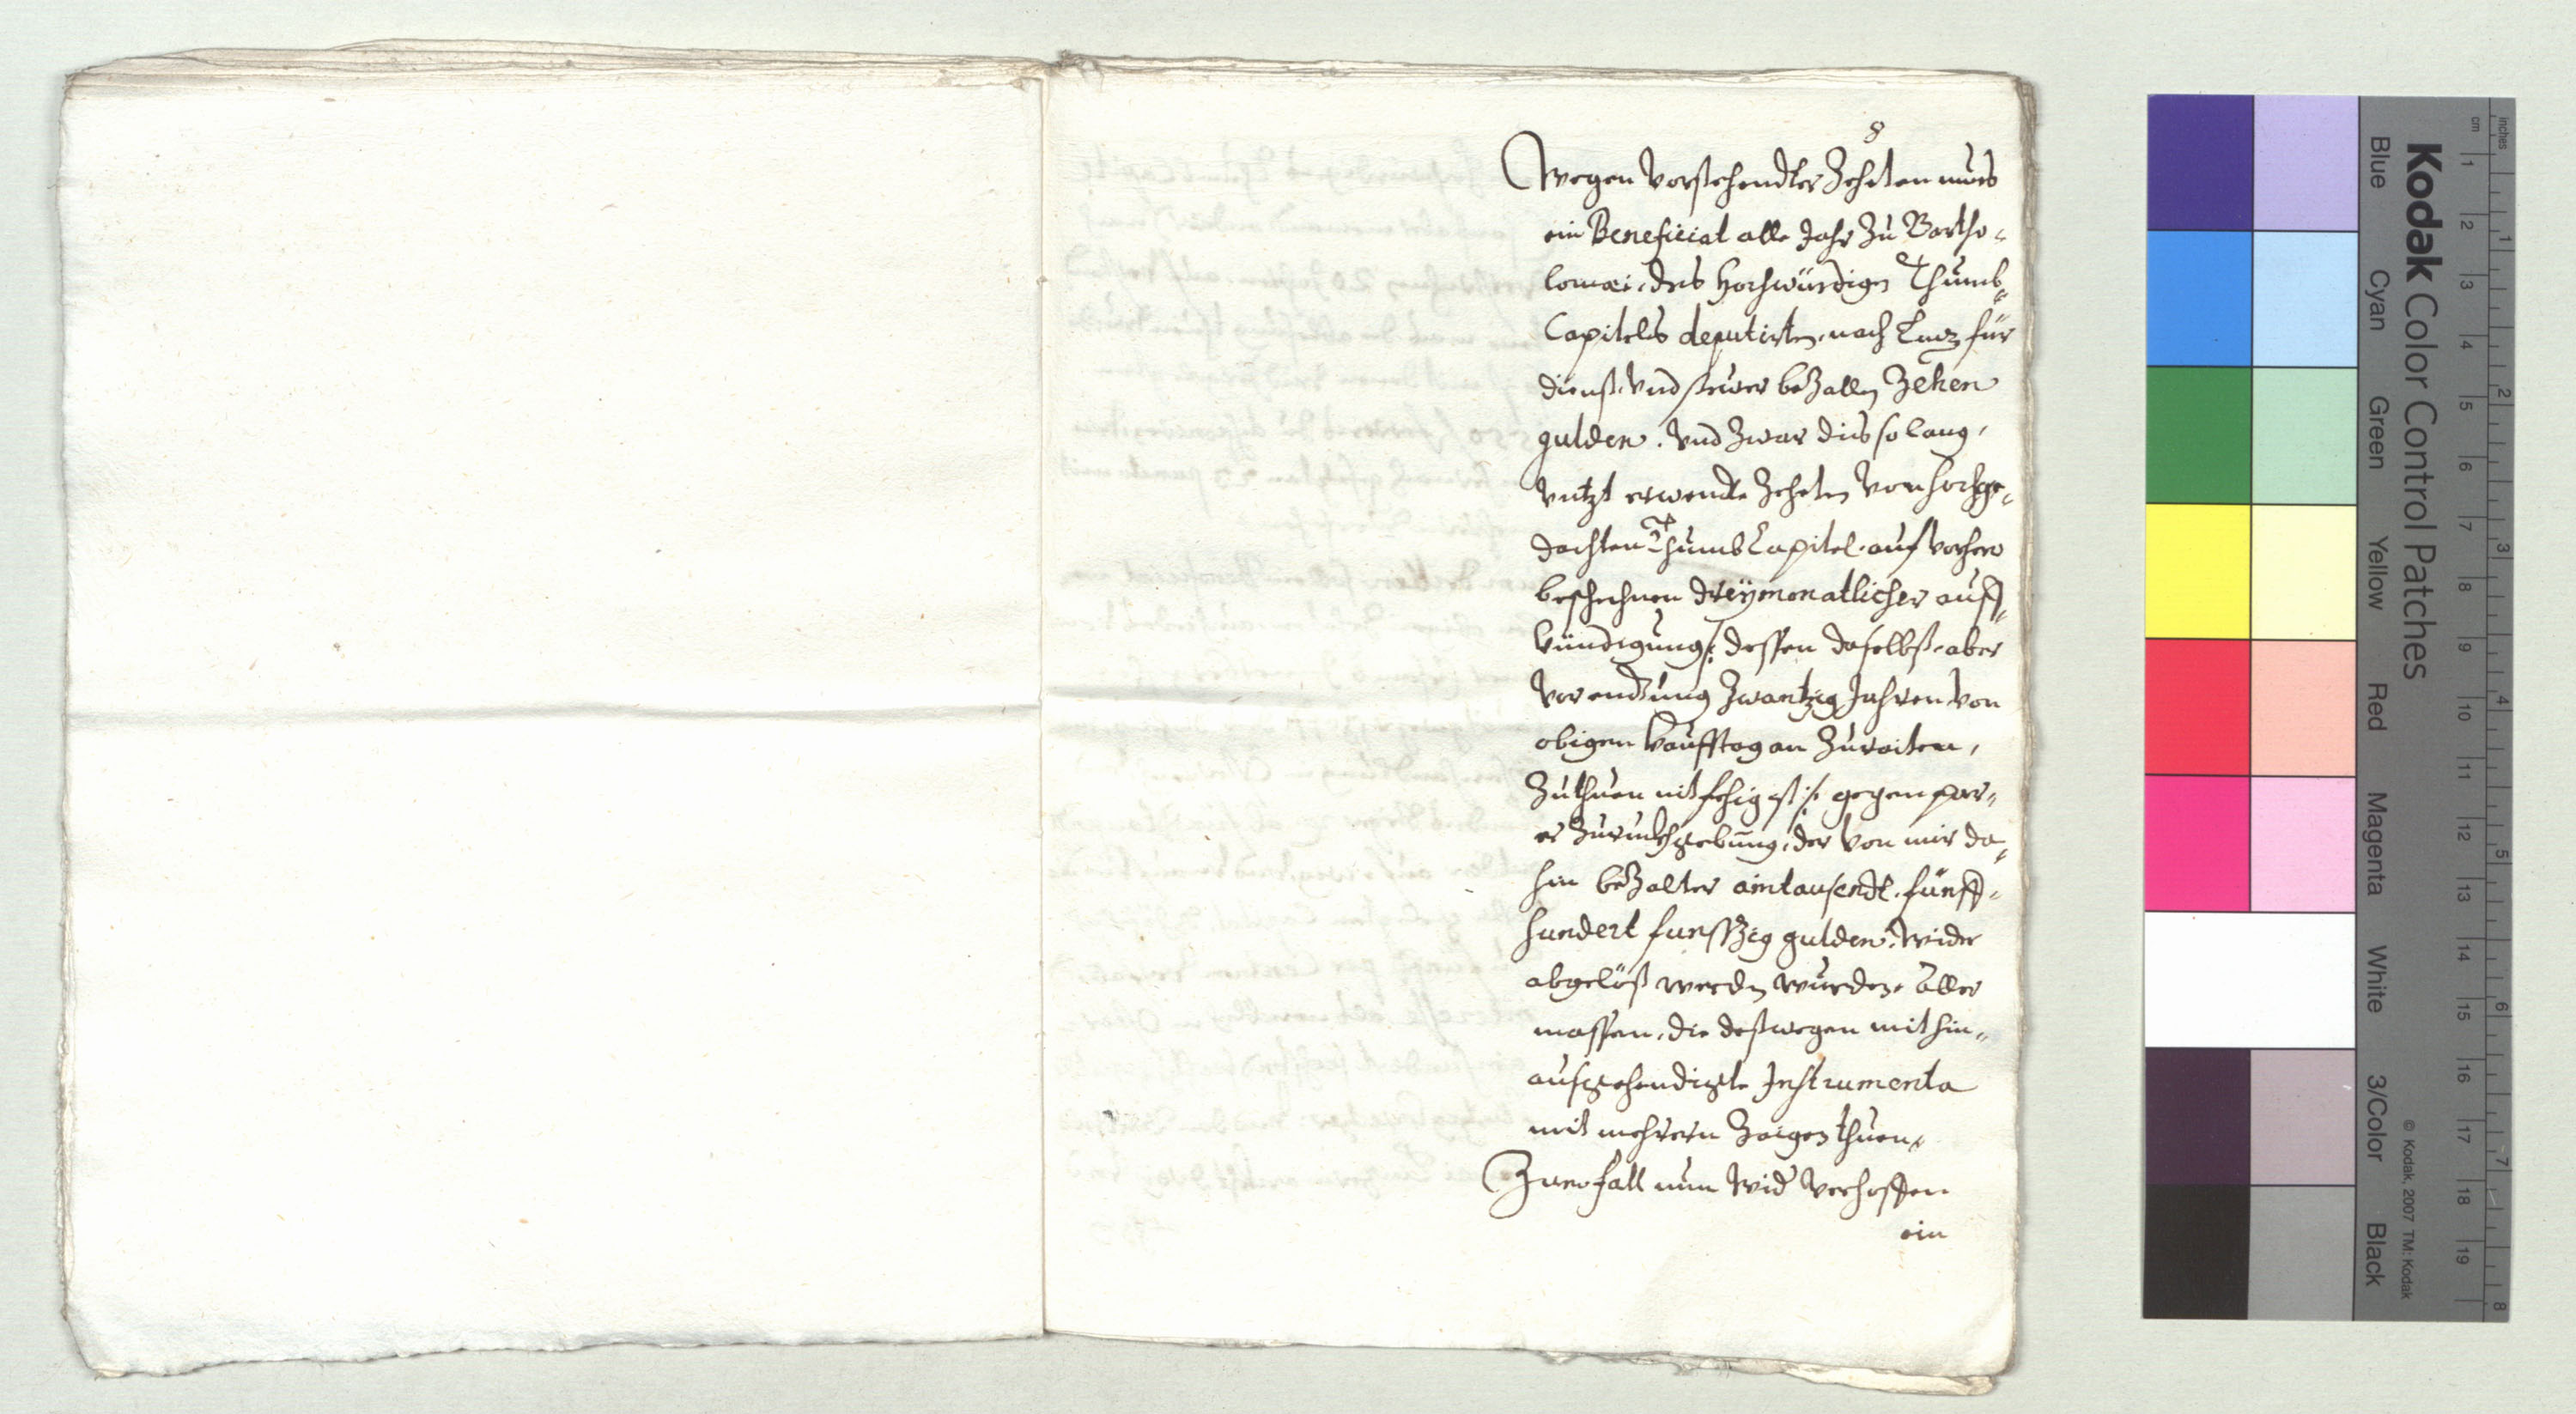 8
Wegen vorstehendter Zeheten mues
ein Beneficiat alle Jahr zu Bartho-
lomæi, des Hochwürdigen Thumb-
Capitels deputirten, nach Lunz für
dienst und steuer bezallen Zehen
gulden. Und zwar dis so lang,
untzt erwendte Zeheten von hochge-
dachten Thumb Capitel, auf vorhero
beschechnen dreymonatlicher auff-
kündigung /: dessen daselbst aber
vor endzung zwantzig Jahren von
obigen kaufftag an zuraiten,
zuthuen nit fehig ist :/ gegen par-
er zuruckhgebung, der von mir da-
hin bezalter aintausendt fünff-
hundert funffzig gulden, wider
abgelöst werden wurden. Aller
massen, die desswegen mit hin-
ausgehendigte Instrumenta
mit mehrern zaigen thuen.
Zum fall nun wid verhoffen
ein
Kodak Color Control Patches
Blue Cyan Green Yellow Red Magenta White 3/Color Black
© Kodak, 2007 TM: Kodak
cm 1 2 3 4 5 6 7 8 9 10 11 12 13 14 15 16 17 18 19
inches 1 2 3 4 5 6 7 8